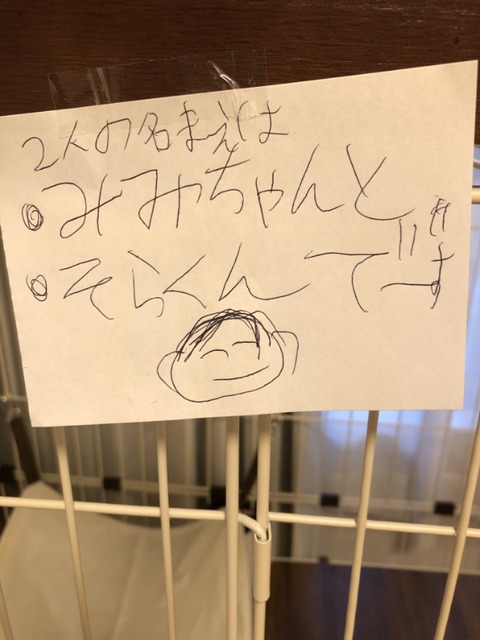 2人の名まえは
みみちゃんと
そらくんです